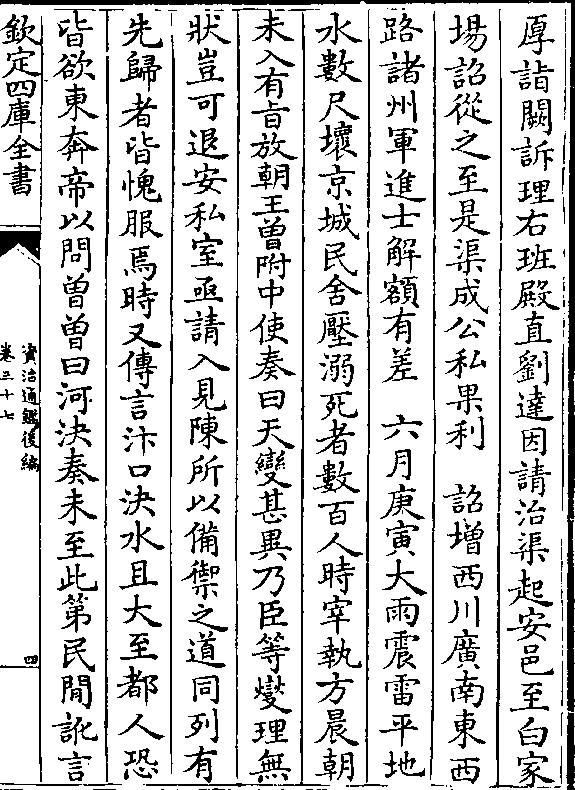 厚詣闕訴理右班殿直劉達因請治渠起安邑至白家
場詔從之至是渠成公私果利　詔增西川廣南東西
路諸州軍進士解額有差　六月庚寅大雨震雷平地
水數尺壞京城民舍壓溺死者數百人時宰執方晨朝
未入有旨放朝王曽附中使奏曰天變甚異乃臣等燮理無
狀豈可退安私室亟請入見陳所以備禦之道同列有
先歸者皆愧服焉時又傳言汴口決水且大至都人恐
皆欲東奔帝以問曽曽曰河決奏未至此第民閒訛言
欽定四庫全書
資治通鑑後編
卷三十七
四